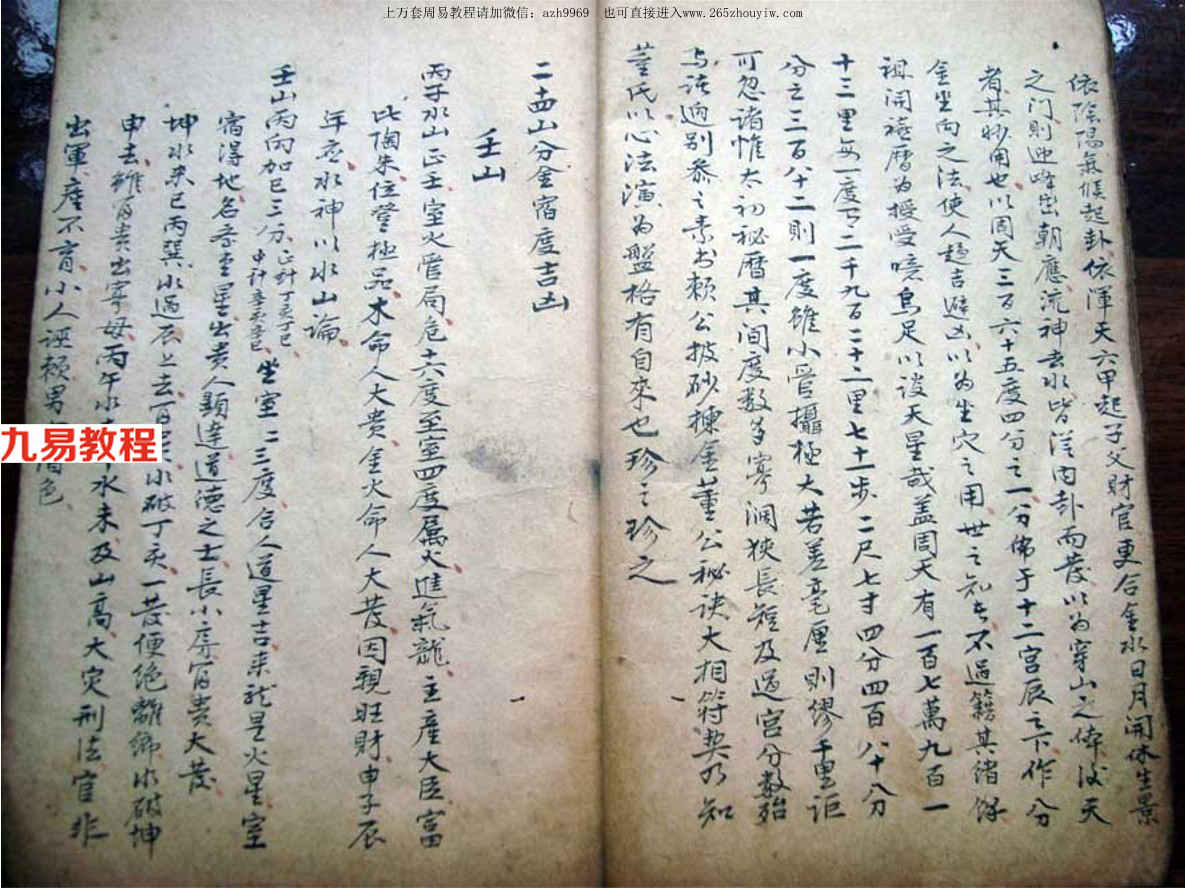 上万套周易教程请加微信：azh9969 也可直接进入www.265zhouyiw.com
依陰陽氣候起卦依渾天六甲起子父財官更合金水日月開休生景
之门則迎峰出朝應流神去水皆從内卦而發以为穿山之律法天
者其妙用也以周天三百六十五度四分之一分佈于十二宮辰之下作分
金坐向之法使人趋吉避凶以为生穴之用世之知者不過籍其绪餘
祖開禧曆为授受噫烏足以谈天星哉盖周天有一百七萬九百一
十三里每一度下二千九百二十二里七十一步二尺七寸四分四百八十八分
分之三百八十二則一度雖小管攝極大若差毫厘則缪千里讵
可忽诸惟太初秘曆其间度数多寡濶狹長短及過宮分数殆
与諸迥别黍之素书赖公披砂揀金董公秘訣大相符契乃知
董氏以心法演为盤格有自來也珍之珍之
二十四山分金宿度吉凶
壬山
丙子水山正壬室火管局危十六度至室四度属火進氣龍主産大臣富
此陶朱位登極品木命人大贵金火命人大发因親旺財申子辰
年应水神以水山論
壬山丙向加巳三分正针丁亥丁巳
中针辛亥辛巳
坐室二三度合人道星吉来龙是火星室
宿得地名奈里星出贵人顯達道德之士長小房富贵大發
坤水来巳丙巽水過辰上去富贵水破丁亥一發便绝離鄉水破坤
申去雖富贵出寡母丙午水
水未及山高大灾刑法官非
出軍産不育小人诬赖男
酒色
九易教程